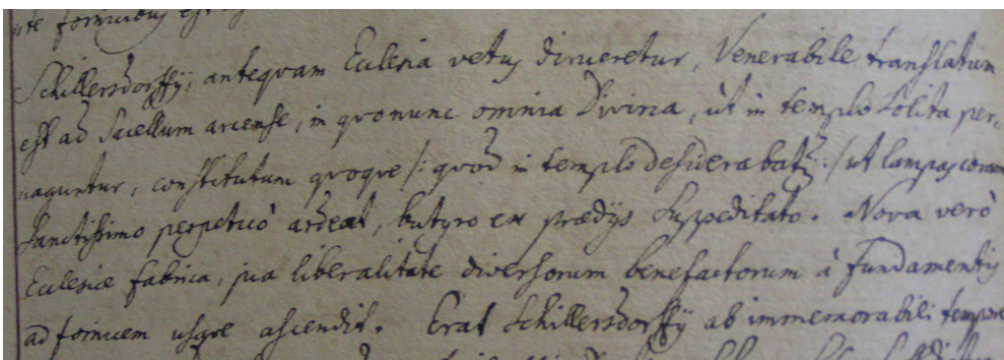 fornicibus est
Schillersdorffij, antequam Ecclesia vetus dirueretur, Venerabile translatum
est ad Sacellum arcense, in quo nunc omnia Divina, ùt in templo solita per,
aguntur, constitutum quoque /: quod in templo desiderabatur :/ ut lampas coram
Sanctissimo perpetuò ardeat, butyro ex prædijs suppeditato. Nova verò
Ecclesiæ fabrica, pia liberalitate diversorum benefactorum à fundamentis
ad fornicem usque ascendit. Erat Schillersdorffij ab immemorabili tempore